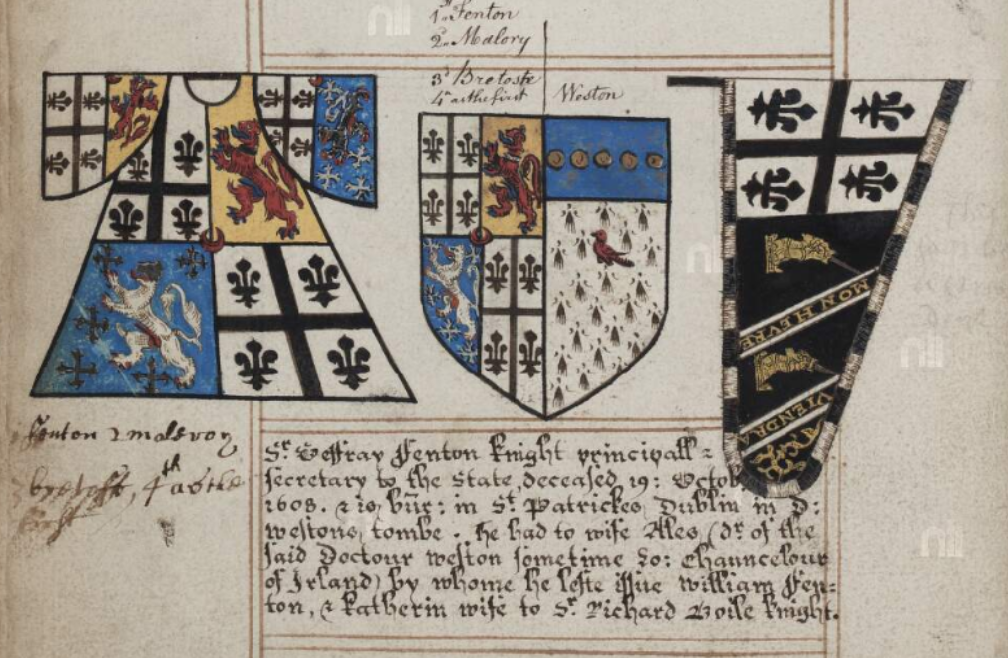 1. Fenton
2. Malory
3 Bretoste
4 as the first
Weston
MON HEVRE
VIENDRA
fenton 2 malevory
4th as the
first
Sr Geffray Fenton knight principall
secretary to the State, deceased 19: Octob
1608. & is bur: in St. Patrickes Dublin in D:
westons tombe. he had to wife Ales (dr. of the
said Doctour weston sometime Lo: Chauncelour
of Irland) by whome he lefte issue william Fen=
ton, & katherin wife to Sr. Richard Boile knight.